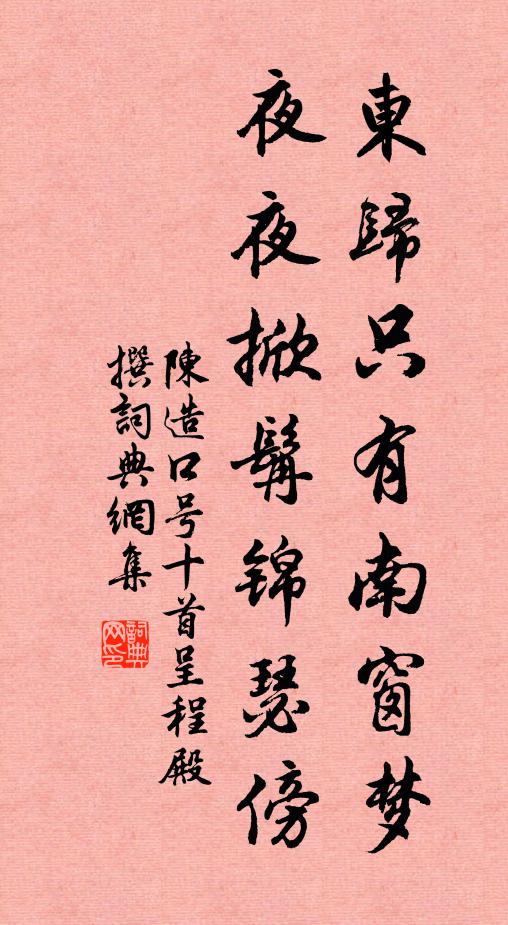 東歸只有南窗梦
夜夜掀髯锦瑟傍
陳造口号十首呈程殿
撰詞典網集
詞典网印